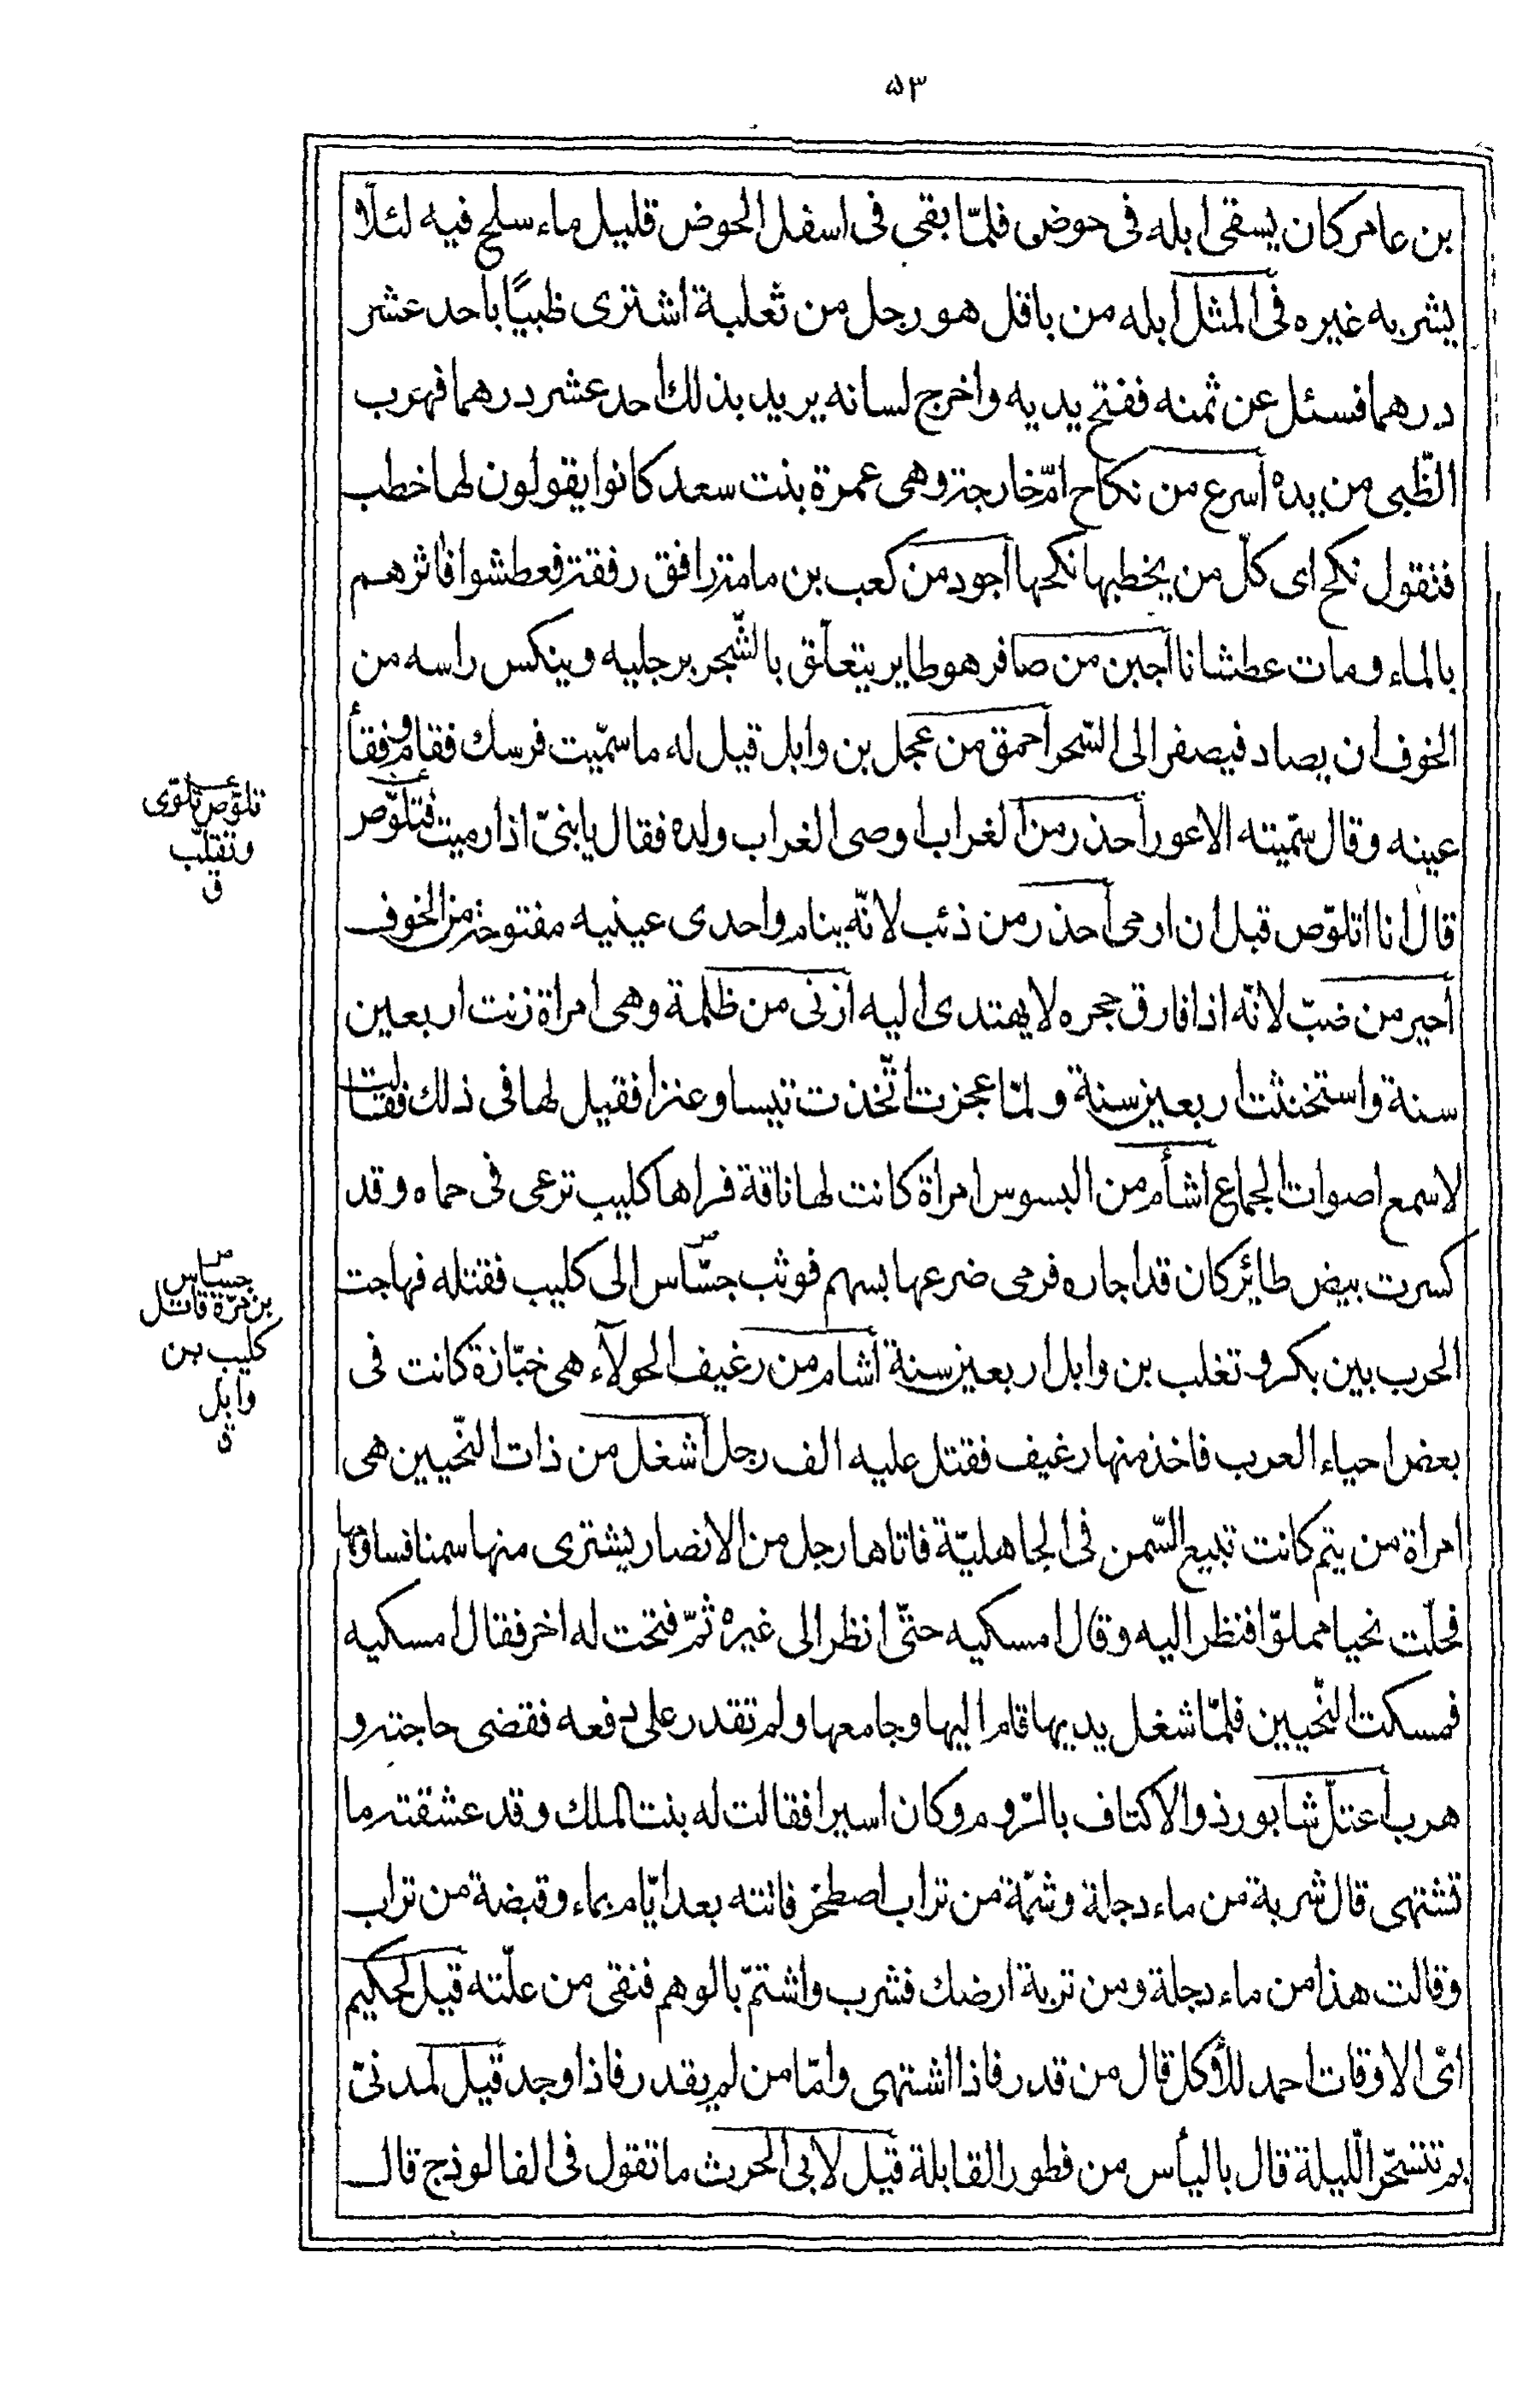 ۵۳
بن عامر كان يسقى ابله فى حوض فلمّا بقى فى اسفل الحوض قليل ماء سلح فيه لئلّا
يشربه غيره فى المثل ابله من باقل هو رجل من ثعلبة اشترى ظبيًا باحد عشر
درهما فسئل عن ثمنه ففتح يديه واخرج لسانه يريد بذلك احد عشر درهما فهرب
الظّبى من يده أسرع من نكاح امّ خارجة وهى عمرة بنت سعد كانوا يقولون لها خطب
فنقول نكح اى كلّ من يخطبها نكحها أجود من كعب بن مامة رافق رفقة فعطشوا فاثرهم
بالماء ومات عطشانا أجبن من صافر هو طاير يتعلّق بالشّجر برجليه وينكس راسه من
الخوف ان يصاد فيصفر الى السّحر أحمق من عجل بن وابل قيل له ما سمّيت فرسك فقام وفقأ
عينه وقال سمّيته الاعور أحذر من الغراب اوصى الغراب ولده فقال يا بنىّ اذا رميت فتلوّص
قال انا اتلوّص قبل ان ارمى أحذر من ذئب لانّه ينام واحدى عينيه مفتوحة من الخوف
أحير من ضبّ لانّه اذا فارق حجره لا يهتدى اليه أزنى من ظلمة وهى امراة زنت اربعين
سنة واستخنثت اربعين سنة ولمّا عجزت اتّخذت تيسا وعنزا فقيل لها فى ذلك فقالت
لاسمع اصوات الجماع اشأم من البسوس امراة كانت لها ناقة فراها كليب ترعى فى حماه وقد
كسرت بيض طائر كان قد اجاره فرمى ضرعها بسهم فوثب جسّاس الى كليب فقتله فهاجت
الحرب بين بكر وتغلب بن وابل اربعين سنة أشام من رغيف الحولآء هى خبّازة كانت فى
بعض احياء العرب فاخذ منها رغيف فقتل عليه الف رجل أشغل من ذات النّحيين هى
امراة من يتم كانت تبيع السّمن فى الجاهليّة فاتاها رجل من الانصار يشترى منها سمنا فساومها
فحلّت نحيا مملوّا فنظر اليه وقال امسكيه حتّى انظر الى غيره ثمّ فتحت له اخر فقال امسكيه
فمسكت النّحيين فلمّا شغل يديها قام اليها وجامعها ولم تقدر على دفعه فقضى حاجته و
هرب أعتلّ شابور ذو الاكتاف بالرّوم وكان اسيرا فقالت له بنت الملك وقد عشقته ما
تشتهى قال شربة من ماء دجلة وشمّة من تراب اصطخر فاتته بعد ايّام بماء وقبضة من تراب
وقالت هذا من ماء دجلة ومن تربة ارضك فشرب واشتمّ بالوهم فنقى من علّته قيل لحكيم
اىّ الاوقات احمد للأكل قال من قدر فاذا اشتهى وامّا من لم يقدر فاذا وجد قيل لمدنىّ
بم تتسحّر اللّيلة قال باليأس من فطور القابلة قيل لابى الحرث ما تقول فى الفالوذج قال
تلوّص تلوّى
وتقلّب
ق
جسّاس
بن مرّة قاتل
كليب بن
وابل
ق